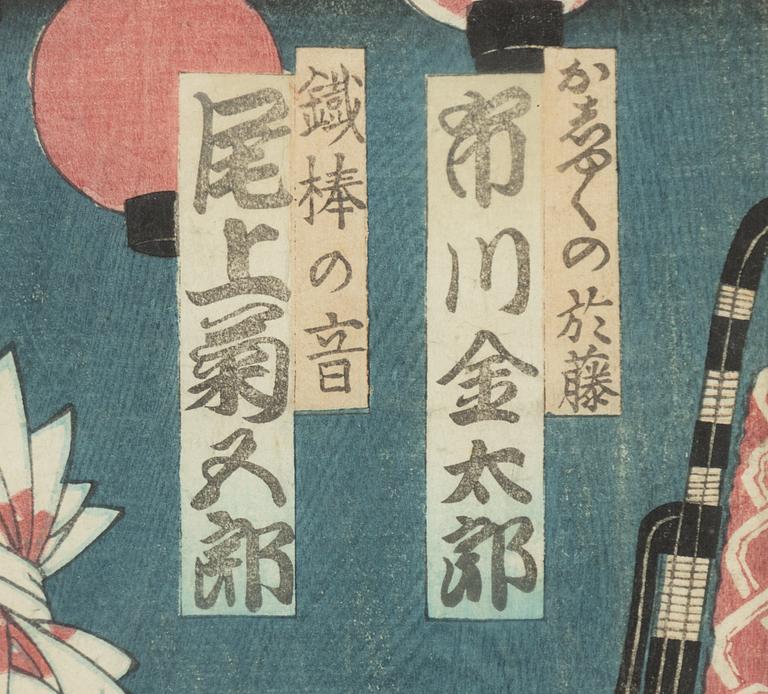 かしゆくの於藤
市川金太郎
鐵棒の音
尾上菊五郎